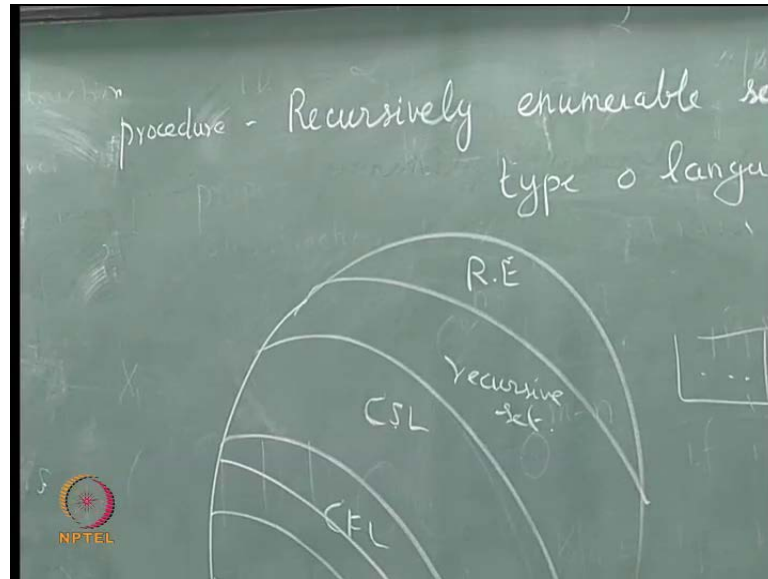 procedure - Recursively enumerable se
type 0 langu
R.E
recursive
set.
CSL
CFL
NPTEL